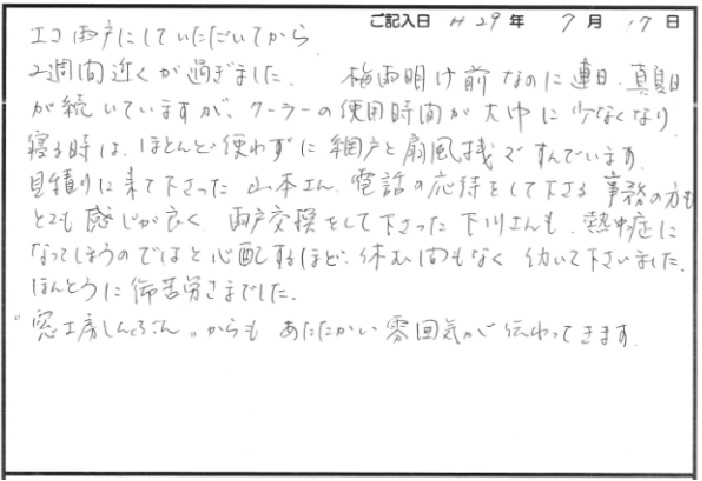 ご記入日 H29年 7月 17日
エコ雨戸にしていただいてから
2週間近くが過ぎました。 梅雨明け前なのに連日、真夏日
が続いていますが、クーラーの使用時間が大巾に少なくなり
寝る時は、ほとんど使わずに網戸と扇風機ですんでいます。
見積りに来て下さった山本さん、電話の応待をして下さる事務の方も
とても感じが良く、雨戸交換をして下さった下川さんも、熱中症に
なってしまうのではと心配するほど、休む間もなく働いて下さいました。
ほんとうに御苦労さまでした。
"窓工房しんろさん"からもあたたかい雰囲気が伝わってきます。